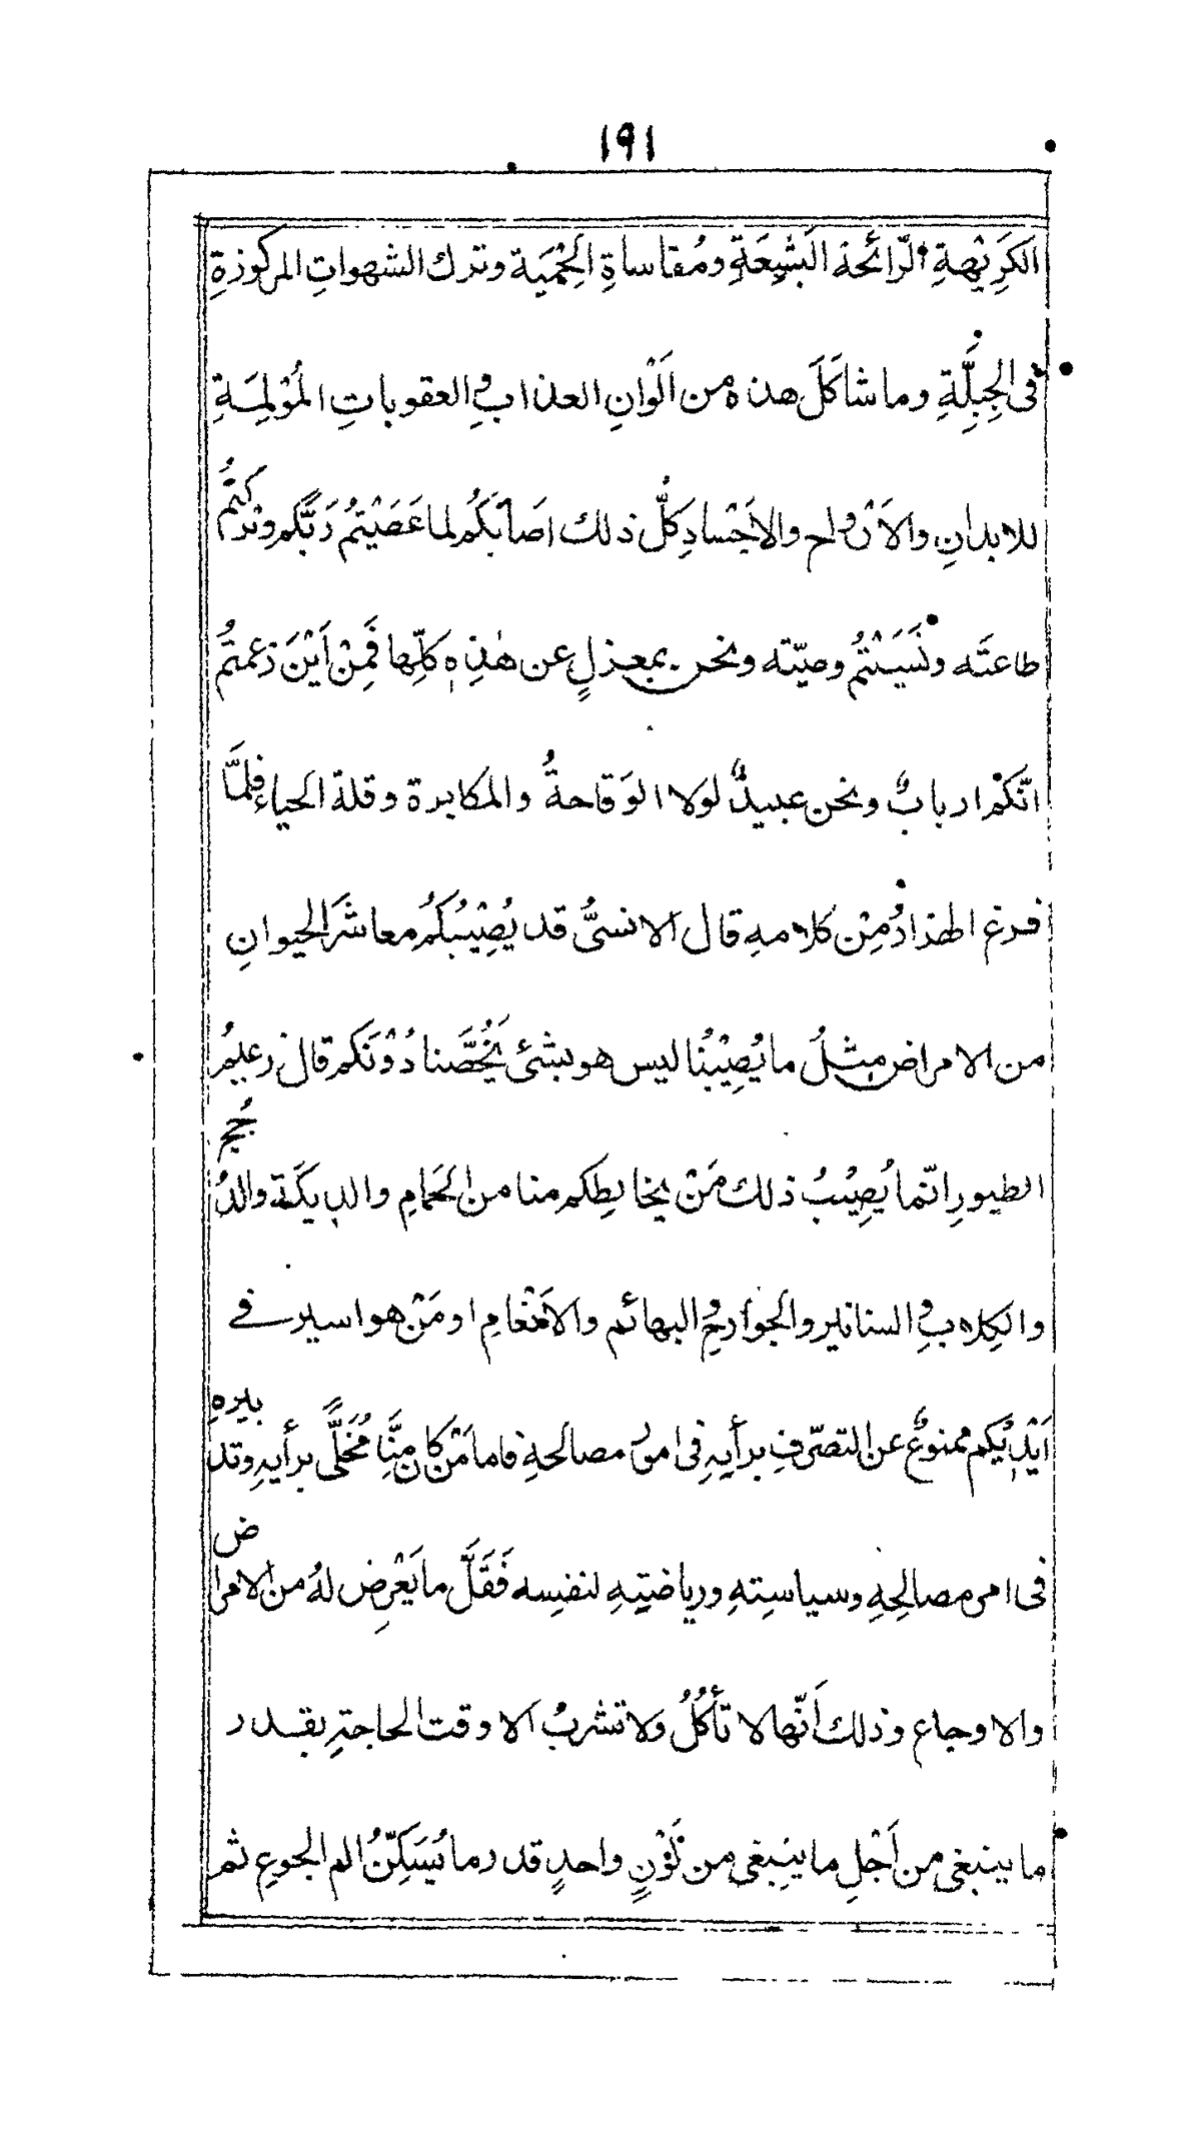 ١٩١
الكَرِيْهةِ الرّائحة البَشِعَةِ ومُقاساةِ الحِمْيَة وترك الشهواتِ المركوزةِ
فى الجِبِلَّةِ وما شاكَلَ هذه من اَلْوانِ العذابِ والعقوباتِ المُوْلِمَةِ
للابدانِ والاَرْواح والاَجْسادِ كلُّ ذلك اَصَابَكُم لما عَصَيْتُم رَبَّكم وتركتُم
طاعتَه ونَسَيْتُم وصيّته ونحن بمعزلٍ عن هٰذِهٖ كلِّها فَمِنْ اَيْنَ زعمتُم
انّكمْ اربابٌ ونحن عبيدٌ لولا الوَقاحةُ والمكابرة وقلة الحياءِ فلمَّا
فرغ الهزادُ مِنْ كلامهِ قال الانسىُّ قد يُصِيْبُكُم معاشَرَ الحيوانِ
من الامراض مثلُ ما يُصِيْبُنا ليس هو بشئ يَخُصَّنا دُوْنَكم قال زعيمُ
الطيورِ انّما يُصِيْبُ ذلك مَنْ يخالِطكم منا من الحَمامِ والديكَة والدُجج
والكِلابِ والسنانير والجوارحِ والبهائم والاَنْعامِ او مَنْ هو اسير فے
اَيْدِيْكم ممنوعٌ عن التصّرفِ برأيِهِ فى امر مصالحهِ فاما مَنْ كان مِنَّا مُخَلًّى برأيهِ وتدبيرهِ
فى امر مصالِحِهِ وسياسِتهِ ورياضتِهِ لنفسِه فَقَلَّ ما يَعْرِض لهُ من الامراض
والاوجاع وذلك اَنّها لا تأكُلُ ولا تشربُ الا وقت الحاجةِ بقدر
ما ينبغى من اَجْلِ ما ينبغى من لَوْنٍ واحدٍ قدر ما يُسَكِّنُ الم الجوعِ ثم